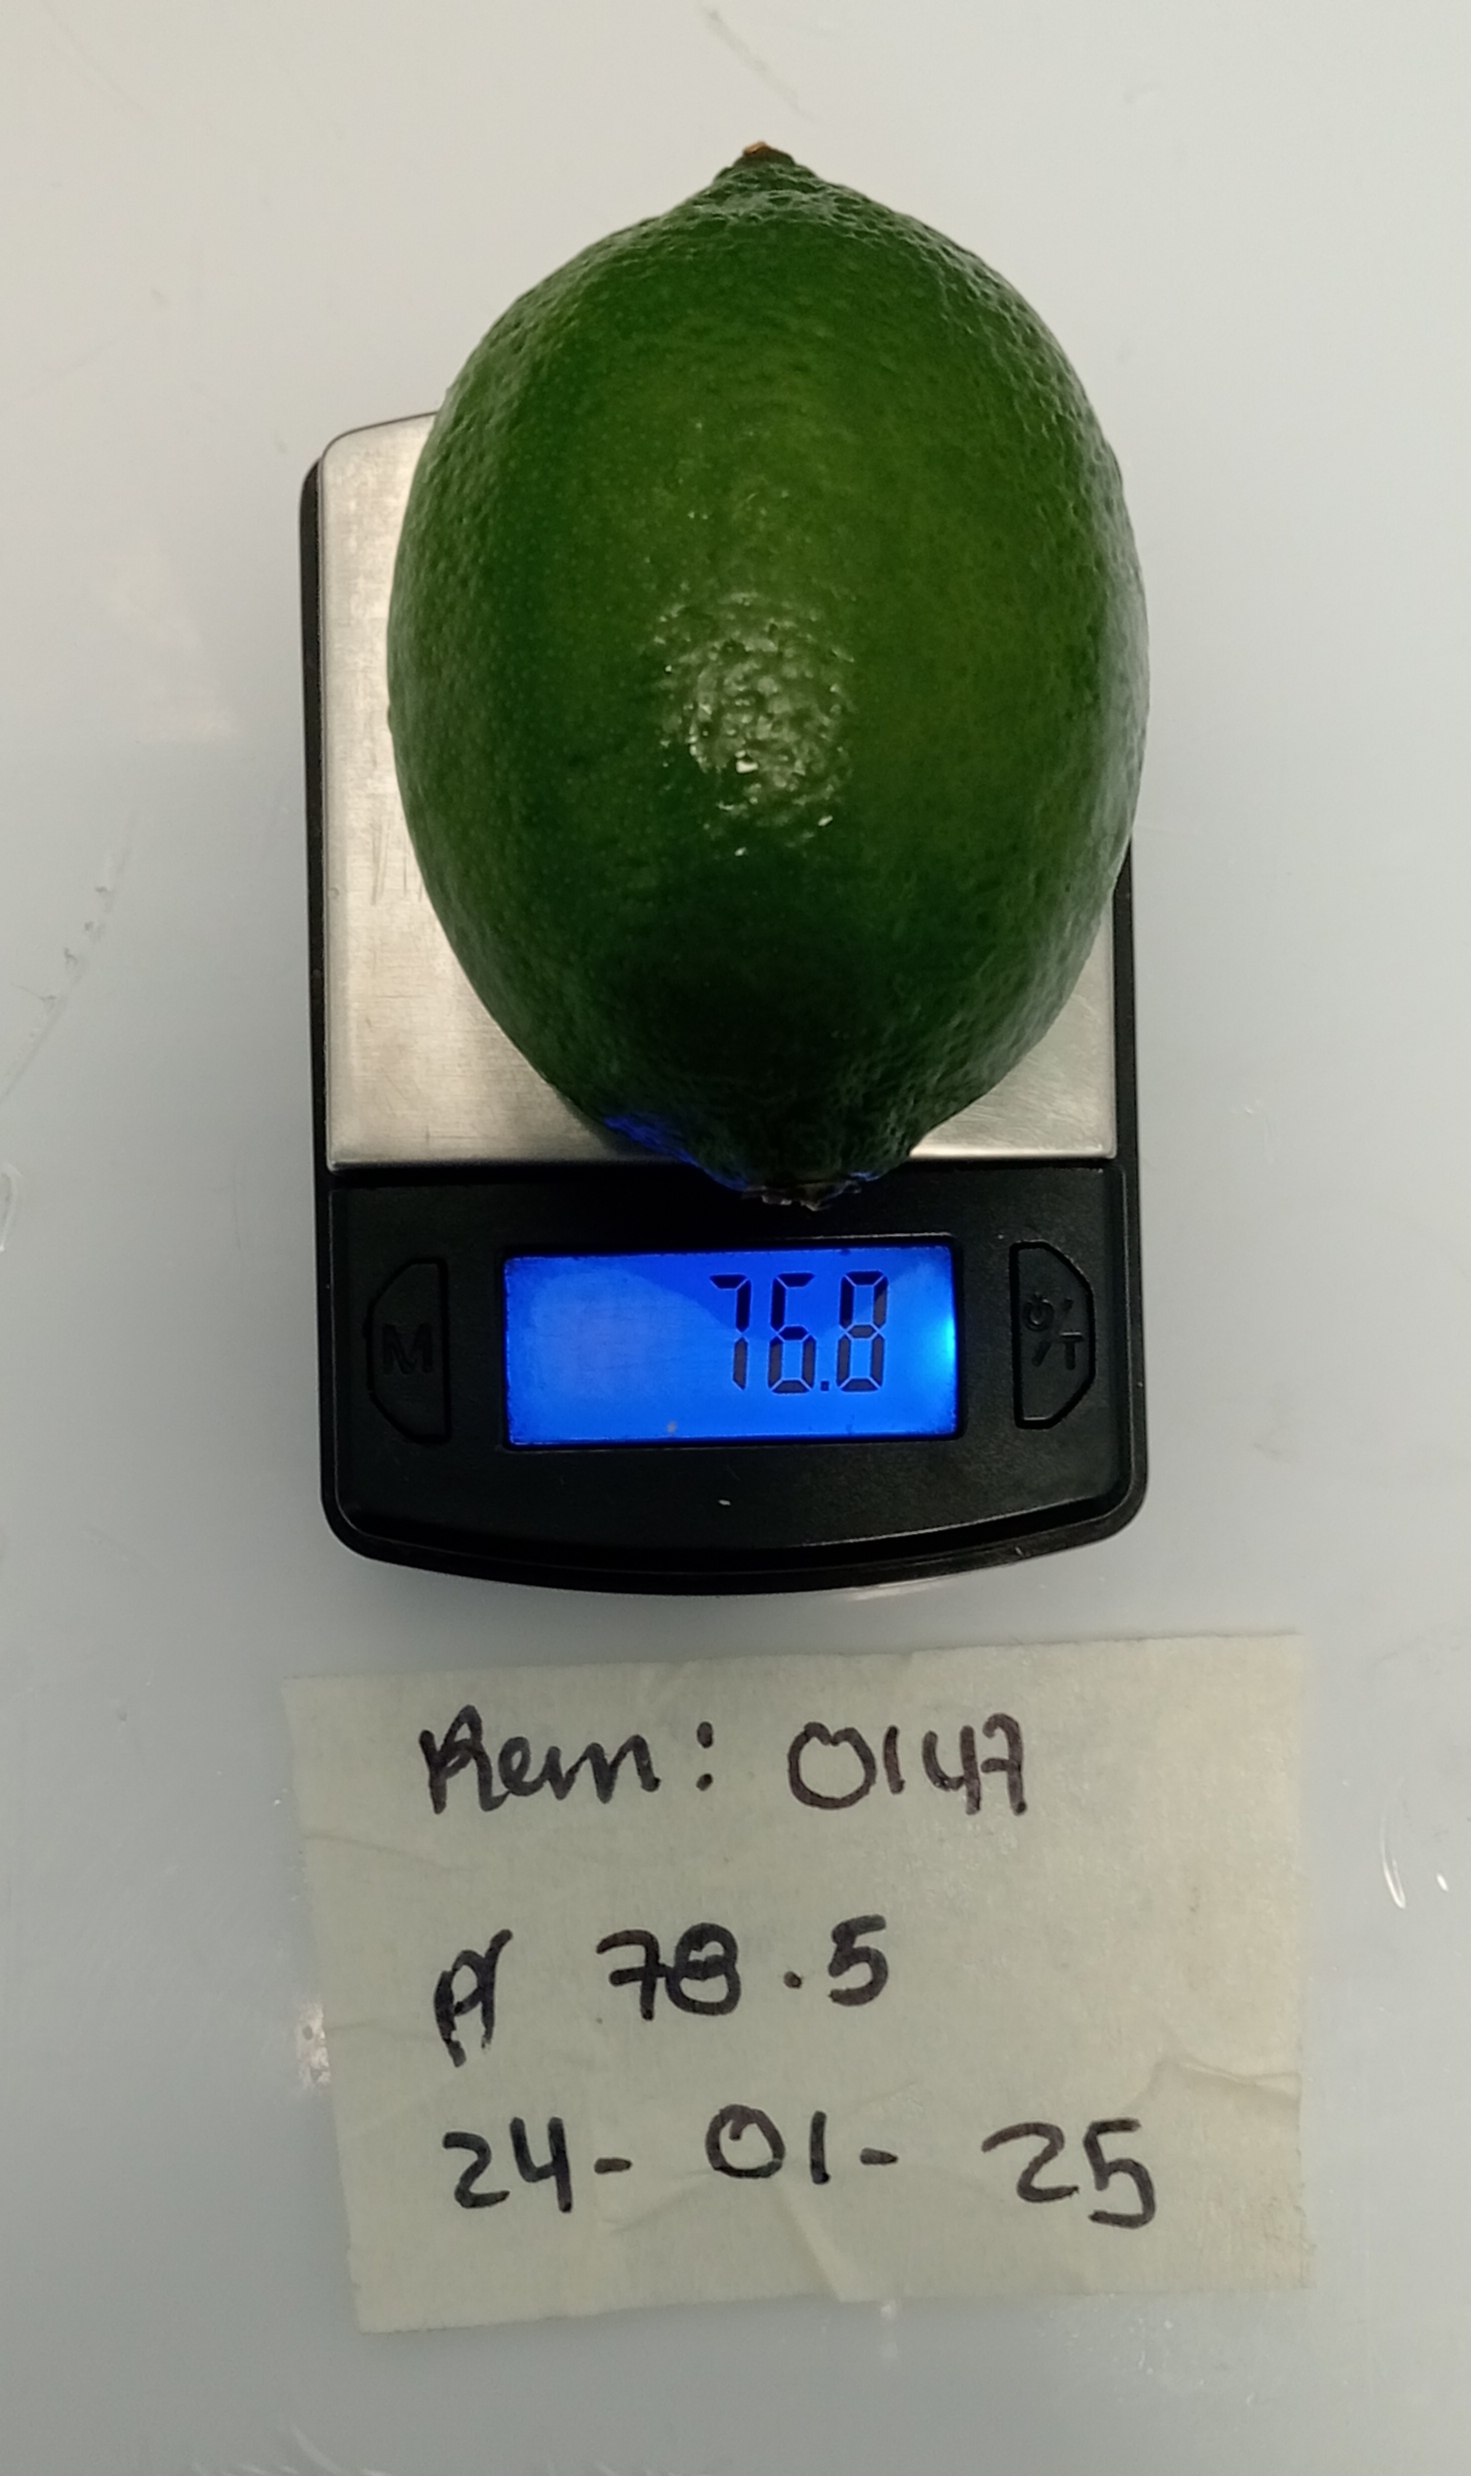 M
76.8
⏻/T
Rem: 0147
78.5
24-01-25